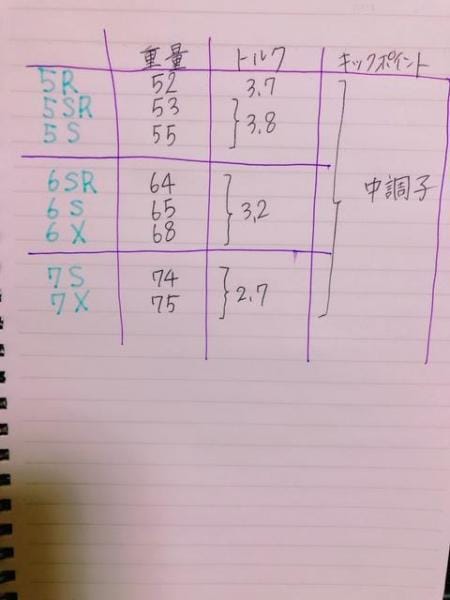 重量 トルク キックポイント
5R 52 3.7
5SR 53
3.8
5S 55
6SR 64 中調子
6S 65 3,2
6X 68
7S 74
2.7
7X 75